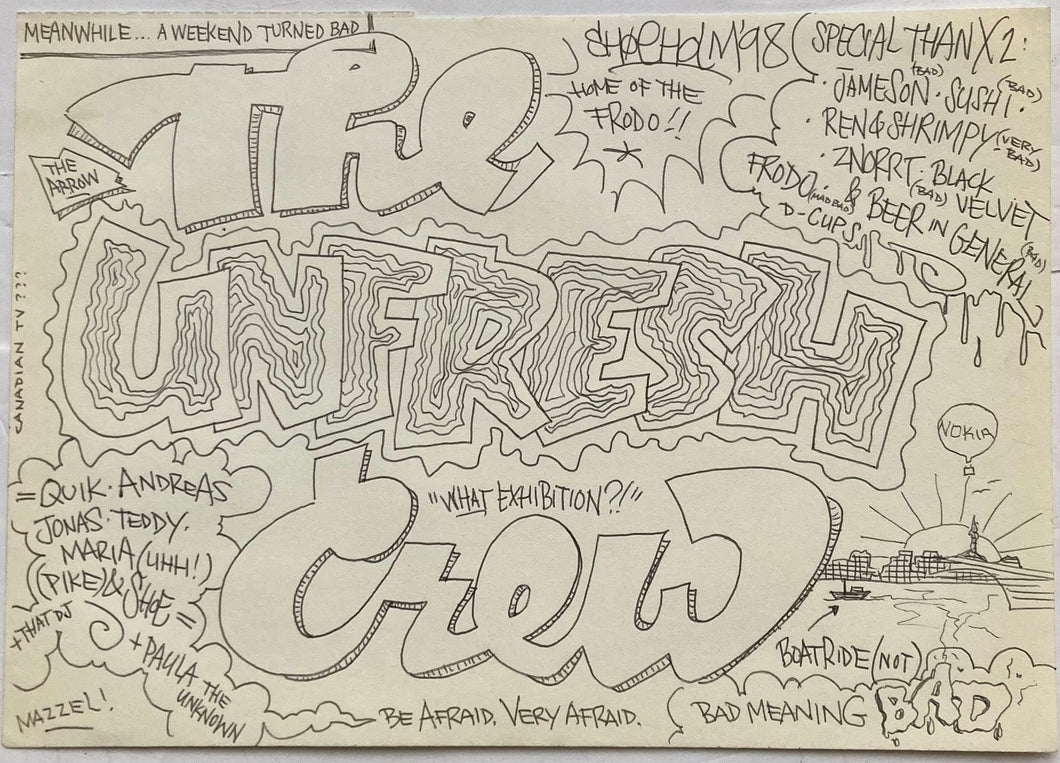 MEANWHILE... A WEEKEND TURNED BAD
The
UNFRESH
Crew
THE
ARROW
SHOEHOLM '98
HOME OF THE
FRODO!!
SPECIAL THANX 2:
· JAMESON (BAD) · SUSHI (BAD) ·
· REN & SHRIMPY (VERY BAD)
· ZNORRT · BLACK
FRODO (MAD BAD) & (BAD) VELVET
D-CUPS BEER IN GENERAL (BAD)
CANADIAN TV ???
NOKIA
"WHAT EXHIBITION?!"
= QUIK · ANDREAS
JONAS · TEDDY.
MARIA (UHH!)
(PIKE) & SHOE =
+ THAT DJ
+ PAULA THE
UNKNOWN
MAZZEL!
BE AFRAID. VERY AFRAID.
BOATRIDE (NOT)
BAD MEANING BAD